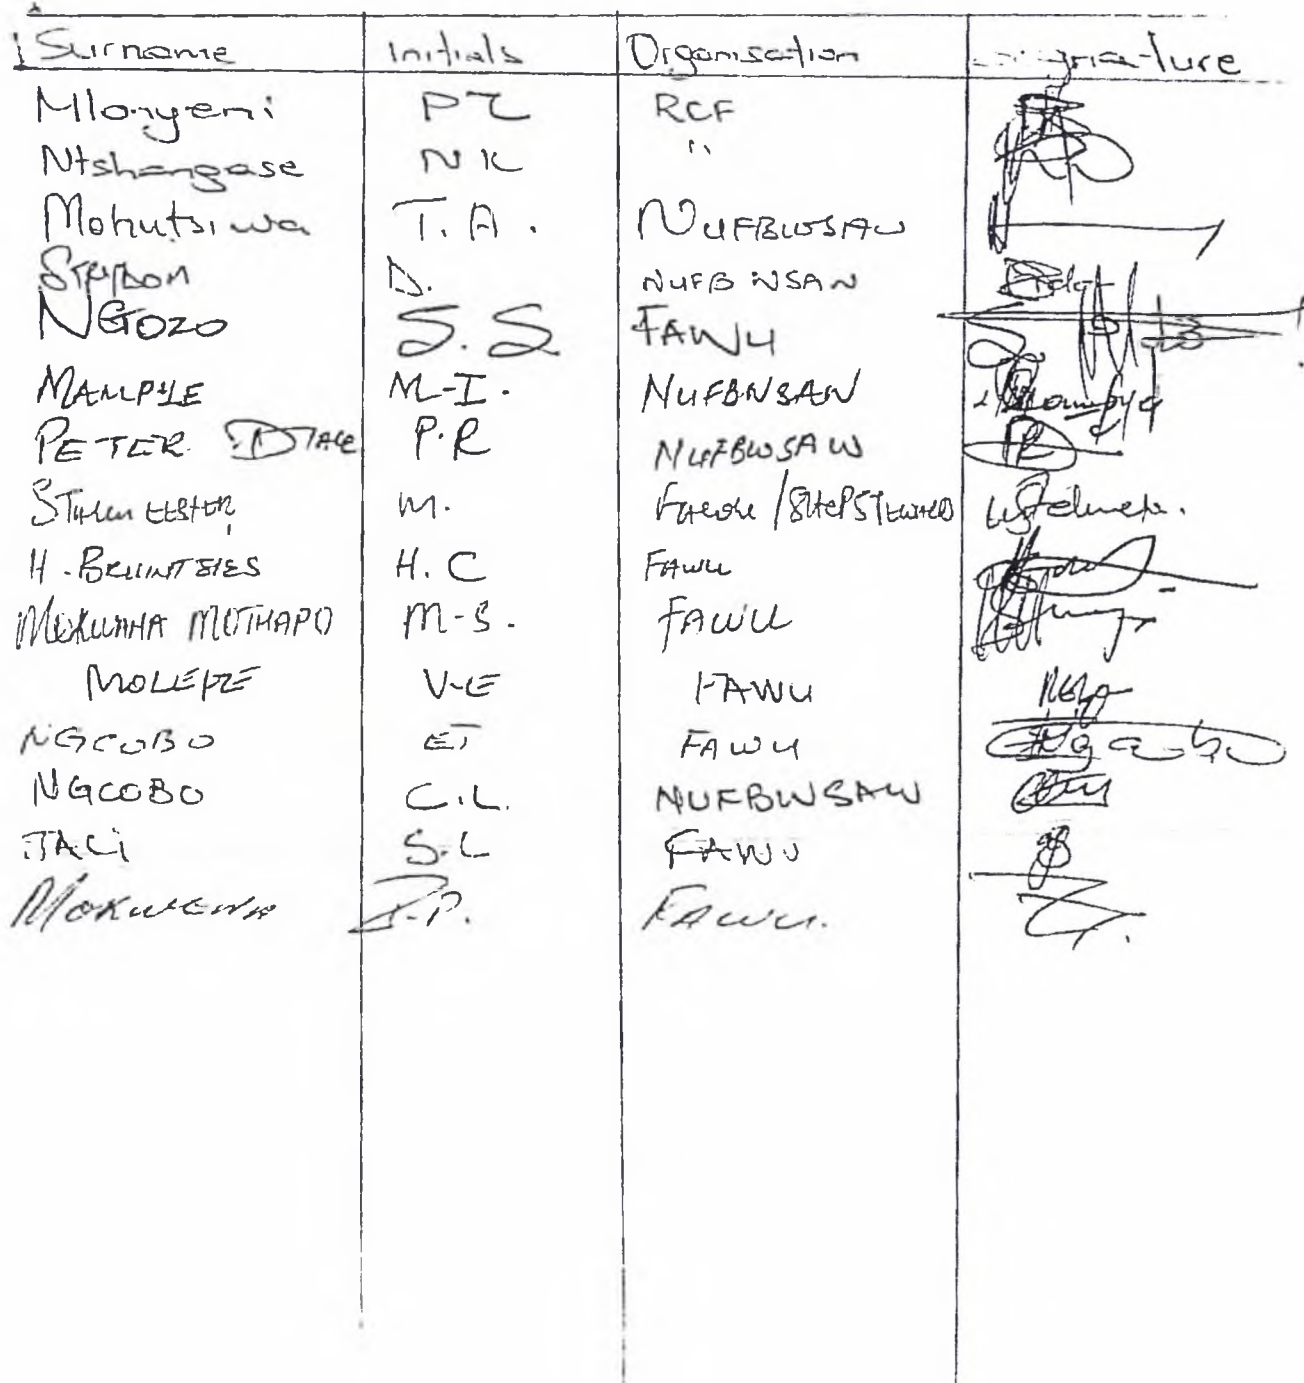 Surname Initials Organisation Signature
Mlonyeni PZ RCF
Ntshangase NK "
Mohutsiwa T.A. NUFBWSAW
D. NUFBWSAW
NGOZO S.S FAWU
MAMPYE M-I. NUFBWSAW
PETER P.R NUFBWSAW
M. /SHOPSTEWARD
H. H.C FAWU
MOTHAPO M-S. FAWU
MOLEPE V-E FAWU
NGCOBO ET FAWU Ngcobo
NGCOBO C.L. NUFBWSAW
JALI S.L FAWU
MOKWENA P. FAWU.